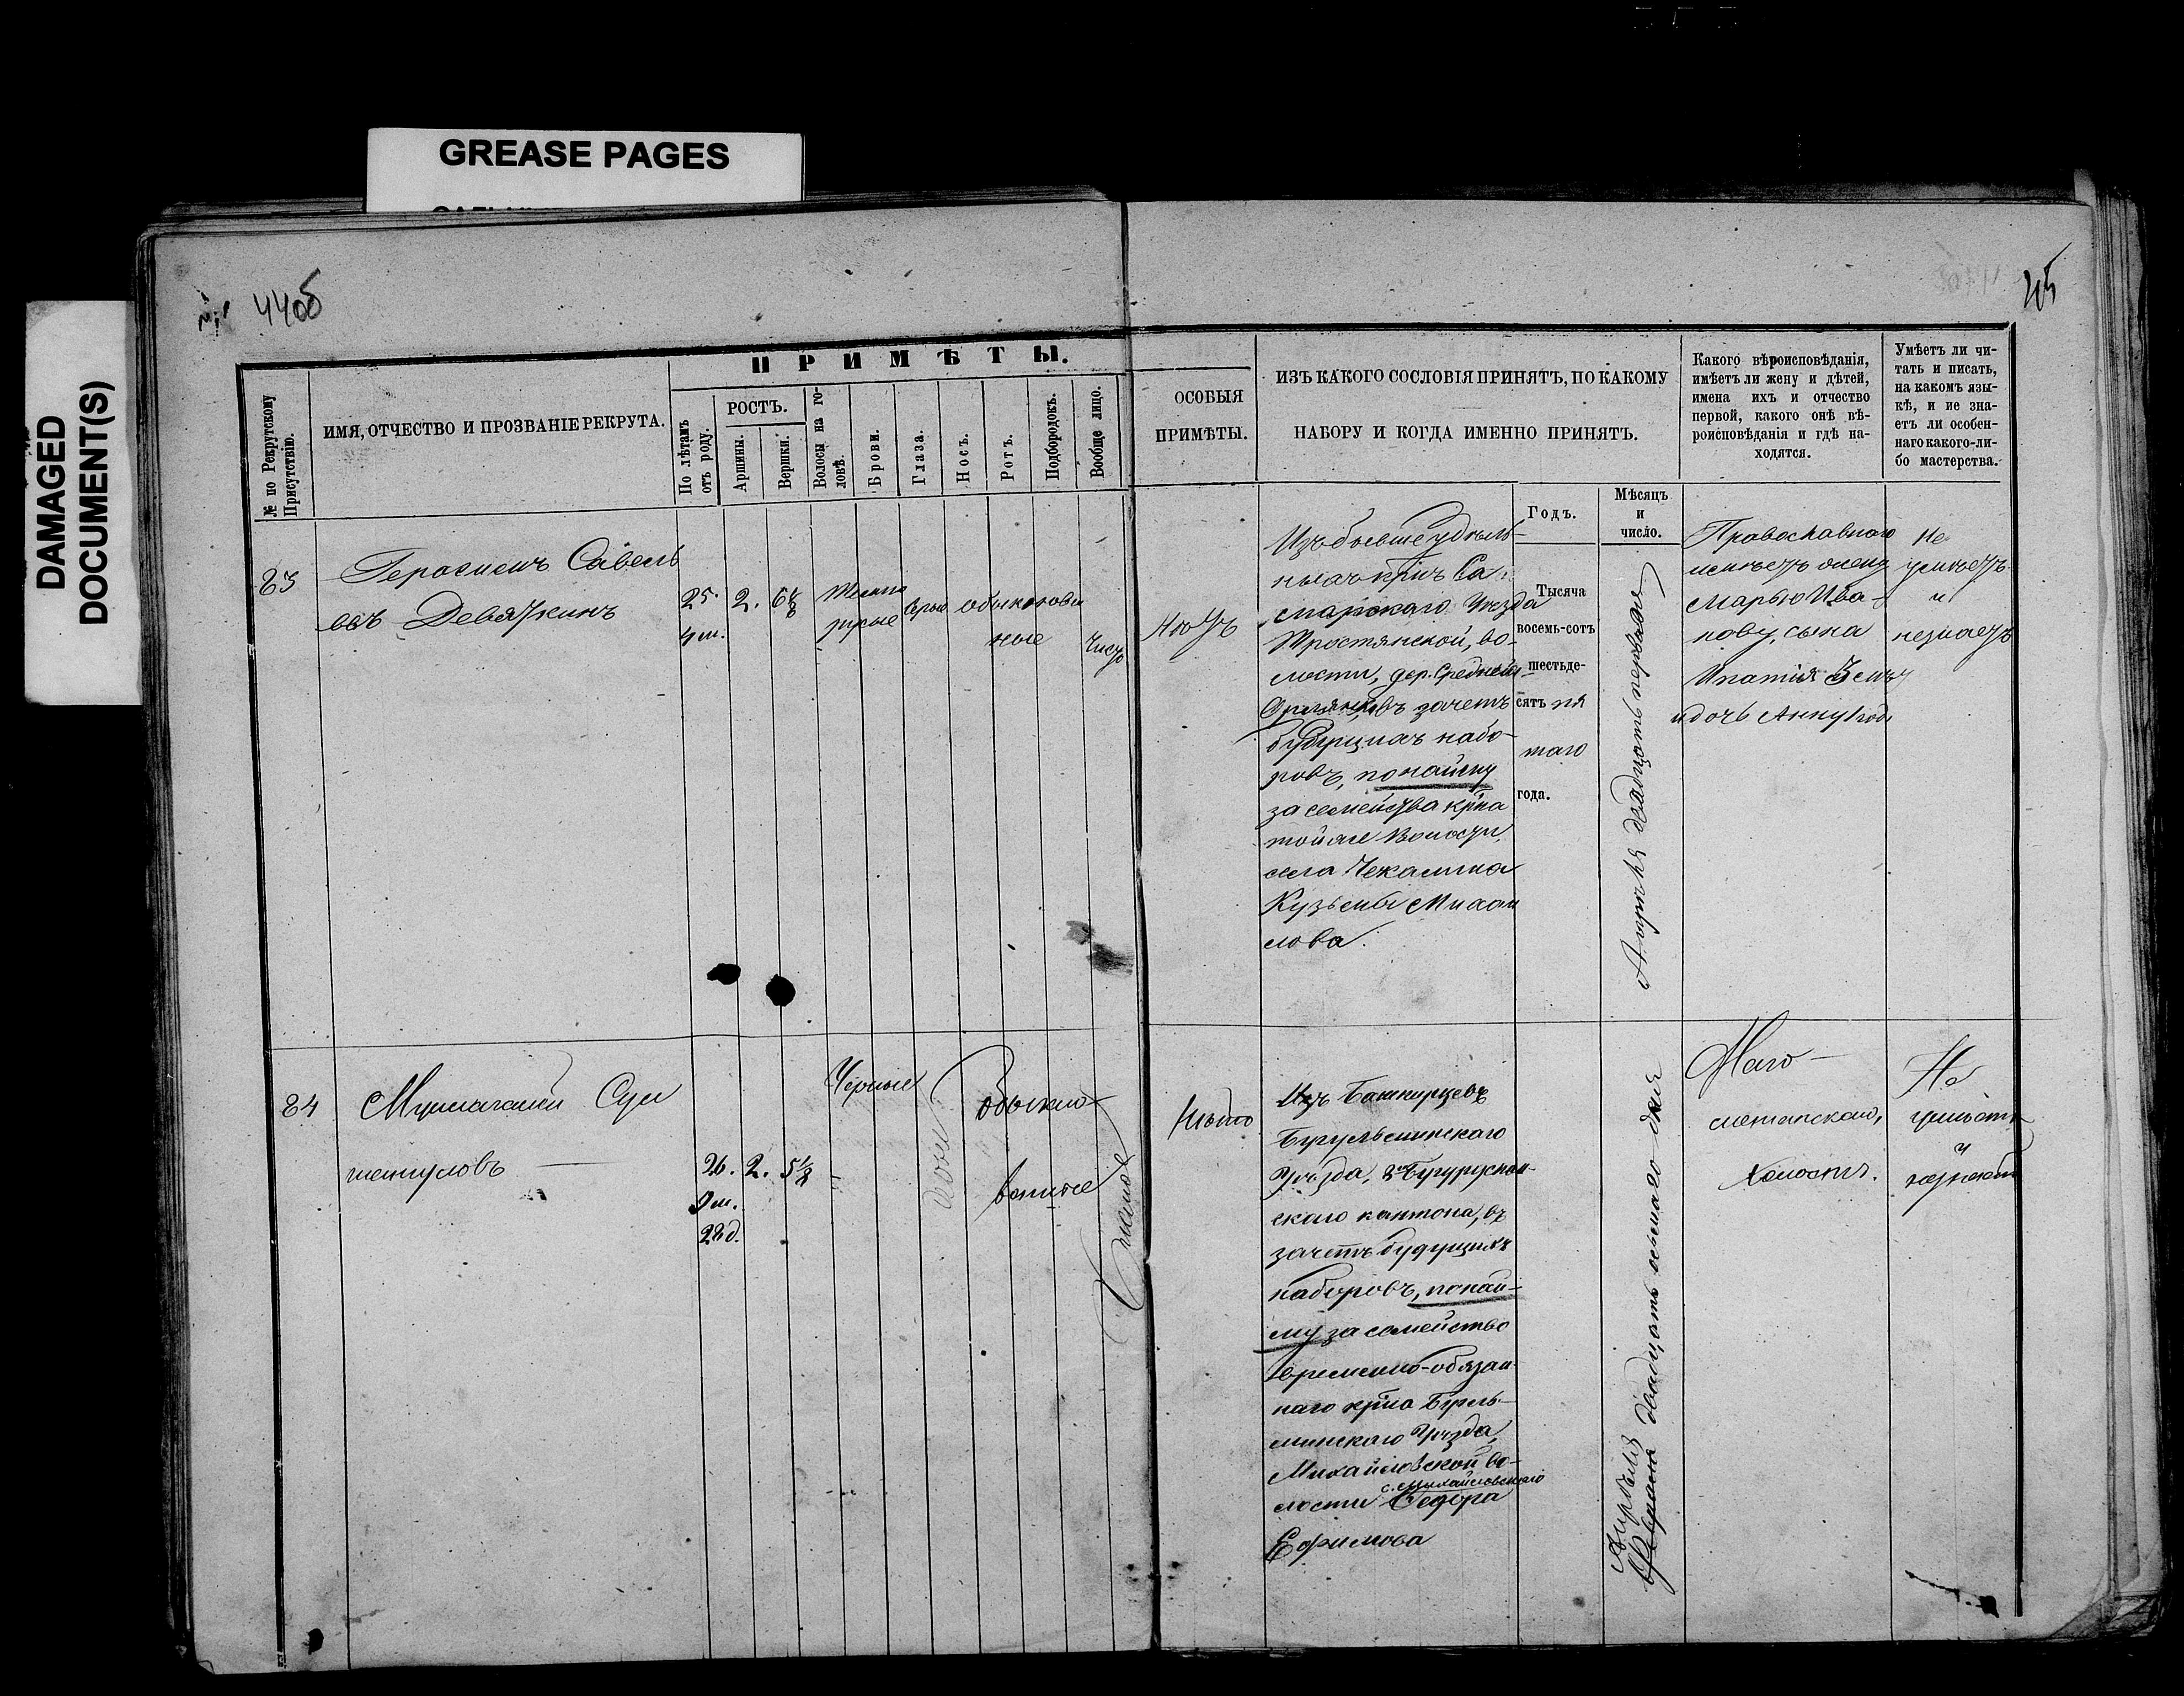 GREASE PAGES
DAMAGED
DOCUMENT(S)
4406
П Р И М Ѣ Т Ы.
№ по Рекрутскому
Присутствію.
ИМЯ, ОТЧЕСТВО И ПРОЗВАНІЕ РЕКРУТА.
По лѣтамъ
отъ роду.
РОСТЪ.
Аршины.
Вершки.
Волосы на го-
ловѣ.
Брови.
Глаза.
Носъ.
Ротъ.
Подбородокъ.
Вообще лицо.
ОСОБЫЯ
ПРИМѢТЫ.
ИЗЪ КАКОГО СОСЛОВІЯ ПРИНЯТЪ, ПО КАКОМУ
НАБОРУ И КОГДА ИМЕННО ПРИНЯТЪ.
Какого вѣроисповѣданія,
имѣетъ ли жену и дѣтей,
имена ихъ и отчество
первой, какого онѣ вѣ-
роисповѣданія и гдѣ на-
ходятся.
Умѣетъ ли чи-
тать и писать,
на какомъ язы-
кѣ, и не зна-
етъ ли особен-
наго какого-ли-
бо мастерства.
Годъ.
Мѣсяцъ
и
число.
83
Герасимъ Савель
евъ Девяткинъ
25.
4 м.
2.
6 4/8
Темно
русые
Сѣрые
обыкновен
ные
Чист
Нѣтъ
Изъ бывше удѣль-
ныхъ кр̃нъ Са
марскаго Уѣзда
Тростянской, во-
лости, дер. Средней
въ зачетъ
будущихъ набо-
ровъ, по найму
за семейства кр̃на
той же Волости,
села Чекалина
Кузьмы Михаи
лова.
Тысяча
восемь-сотъ
шестьде-
сятъ пя
таго
года.
Апрѣля двадцать перваго
Православнаго
имѣетъ жену
Марью Ива-
нову, сына
Ипатія 3 лѣтъ
и дочь Анну 1 года
Не
умѣетъ
и
незнаетъ
84
26.
9 м.
28 д.
2.
5 1/8
Черные
Обыкно-
венные
Чистое
Нѣтъ
Изъ Башкирцевъ
Бугульминскаго
Уѣзда, Бугуруслан-
скаго кантона, въ
зачетъ будущихъ
наборовъ, по най-
му за семейство
временно-обязан-
наго кр̃на Бугуль-
минскаго Уѣзда,
Михайловской во-
с. Михайловскаго
лости Ѳедора
Ефимова
Апрѣля
Февраля двадцать осьмаго дня
Маго-
метанскаго,
холостъ.
Не
умѣетъ
и
незнаетъ